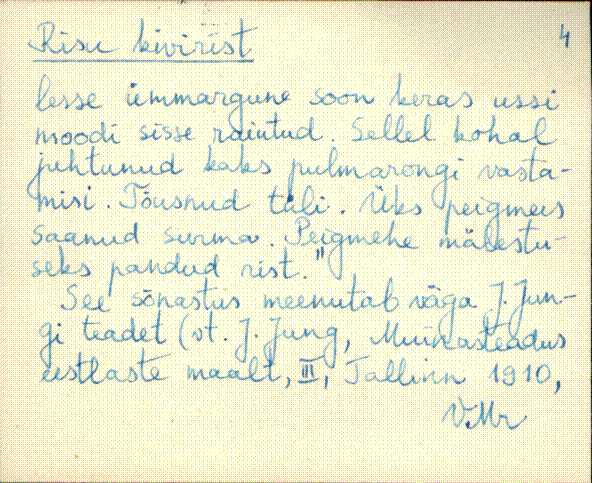 Risu kivirist
4
lesse ümmargune soon keras ussi
moodi sisse raiutud. Sellel kohal
juhtunud kaks pulmarongi vasta-
misi. Tõusnud tüli. Üks peigmees
saanud surma. Peigmehe mälestu-
seks pandud rist."
See sõnastus meenutab väga J. Jun-
gi teadet (vt. J. Jung, Muinasteadus
eestlaste maalt, III, Tallinn 1910,
V.Mr